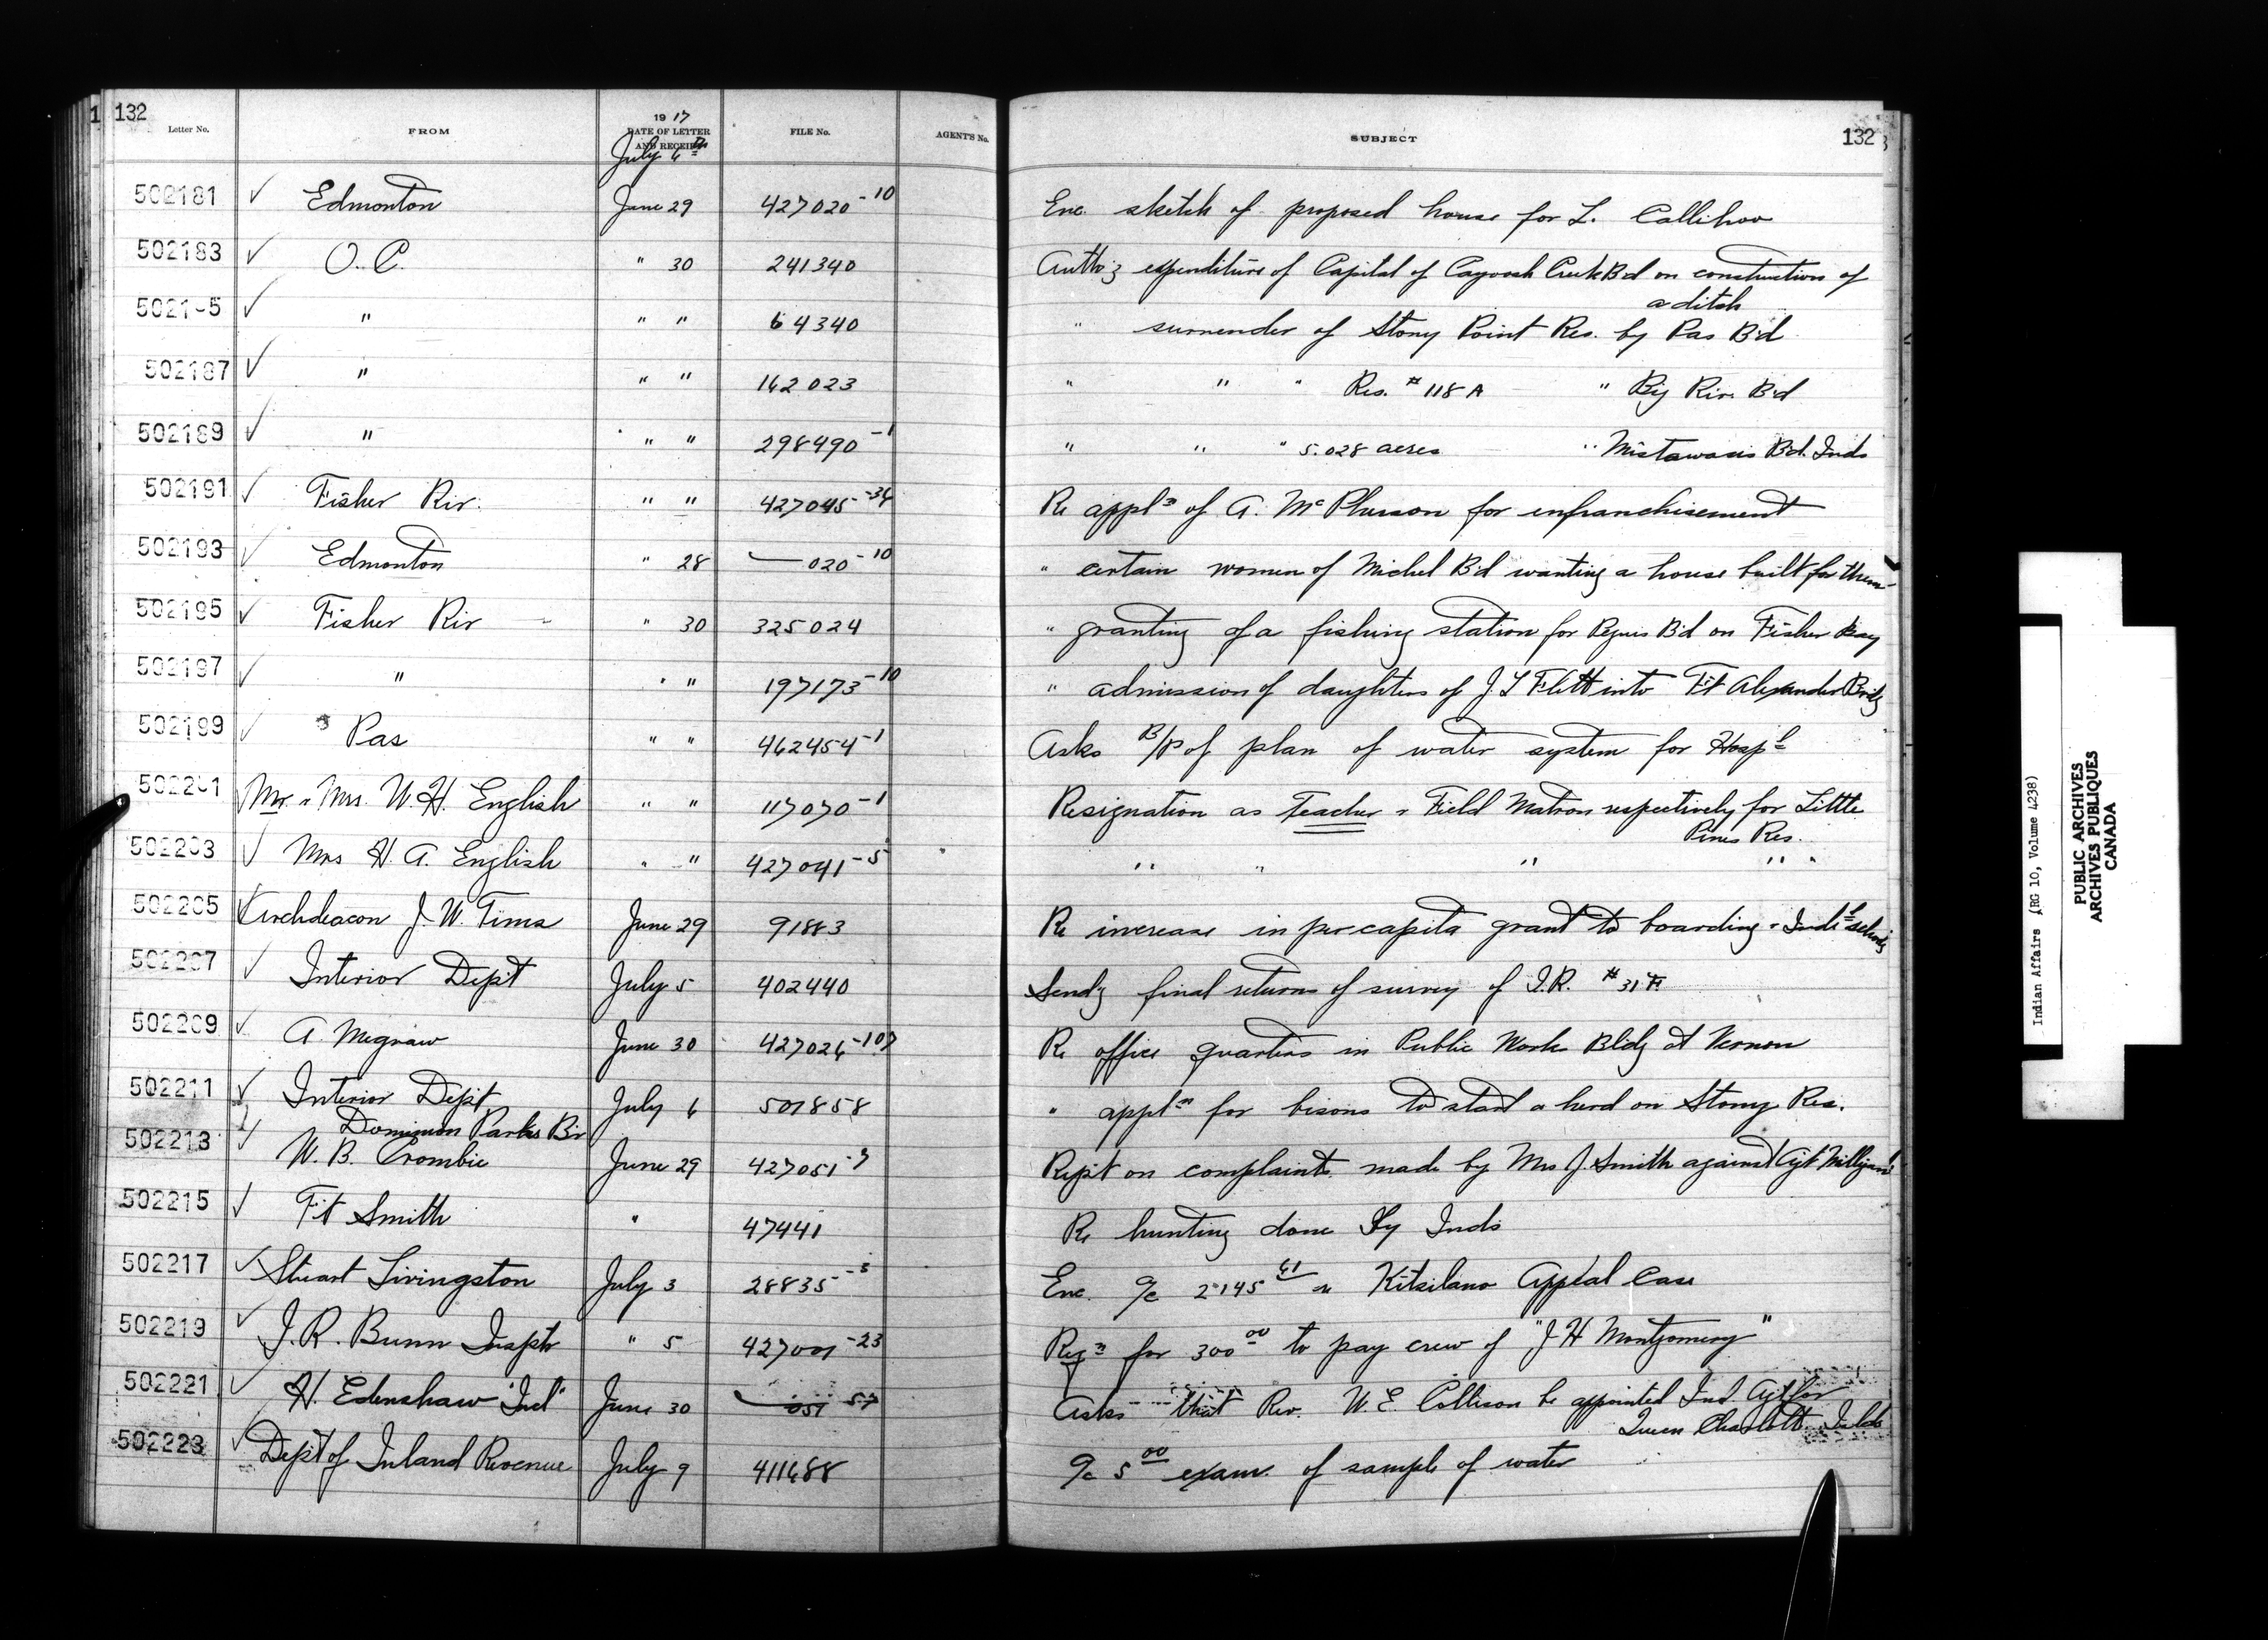 132
Letter No. FROM 1917 DATE OF LETTER AND RECEIPT FILE No. AGENT'S No. SUBJECT 132
July 6th
502181 ✓ Edmonton June 29 427020-10 Enc. sketch of proposed house for L. Callihoo
502183 ✓ O.C. " 30 241340 Authoz expenditure of Capital of Cayoosh Creek Bd on construction of
a ditch
5021-5 ✓ " " " 64340 " surrender of Stony Point Res. by Pas Bd
502187 ✓ " " " 162023 " " " Res. # 118A " Big Riv. Bd
502189 ✓ " " " 298490-1 " " " 5.028 acres " Mistawasis Bd. Inds
502191 ✓ Fisher Riv. " " 427045-34 Re appln of A. McPherson for enfranchisement
502193 ✓ Edmonton " 28 — 020-10 " certain women of Michel Bd wanting a house built for them
502195 ✓ Fisher Riv " 30 325024 " granting of a fishing station for Peguis Bd on Fisher Bay
502197 ✓ " " " 197173-10 " admission of daughters of J. L Flett into Ft Alexander Brdg
502199 ✓ Pas " " 462454-1 Asks B/P of plan of water system for Hospl
502201 Mr. & Mrs. W. H. English " " 117070-1 Resignation as Teacher & Field Matron respectively for Little
Pines Res.
502203 ✓ Mrs H. A. English " " 427041-5 " " " " "
502205 ✓ Archdeacon J. W. Tims June 29 91883 Re increase in per capita grant to boarding & Indl schools
502207 ✓ Interior Dept July 5 402440 Sendg final returns of survey of I.R. # 31
502209 ✓ A. Megraw June 30 427026-107 Re office quarters in Public Works Bldg at Vernon
502211 ✓ Interior Dept July 6 501858 " appln for bisons to start a herd on Stony Res.
Dominion Parks Br
502213 ✓ W. B. Crombie June 29 427051-7 Rept on complaints made by Mrs J. Smith against Agt Milligan
502215 ✓ Ft Smith " 47441 Re hunting done by Inds
502217 ✓ Stuart Livingston July 3 28835-3 Enc. a/c 2145 61 re Kitsilano Appeal Case
502219 ✓ J. R. Bunn Inspr " 5 427001-23 Reqn for 300 00 to pay crew of "J H Montgomery"
502221 ✓ H. Edenshaw "Ind" June 30 — 051 57 Asks that Rev. W. E. Collison be appointed Ind Agt for
Queen Charlotte Islds
502223 ✓ Dept of Inland Revenue July 9 411688 a/c 5 00 exam. of sample of water
Indian Affairs (RG 10, Volume 4238)
PUBLIC ARCHIVES
ARCHIVES PUBLIQUES
CANADA